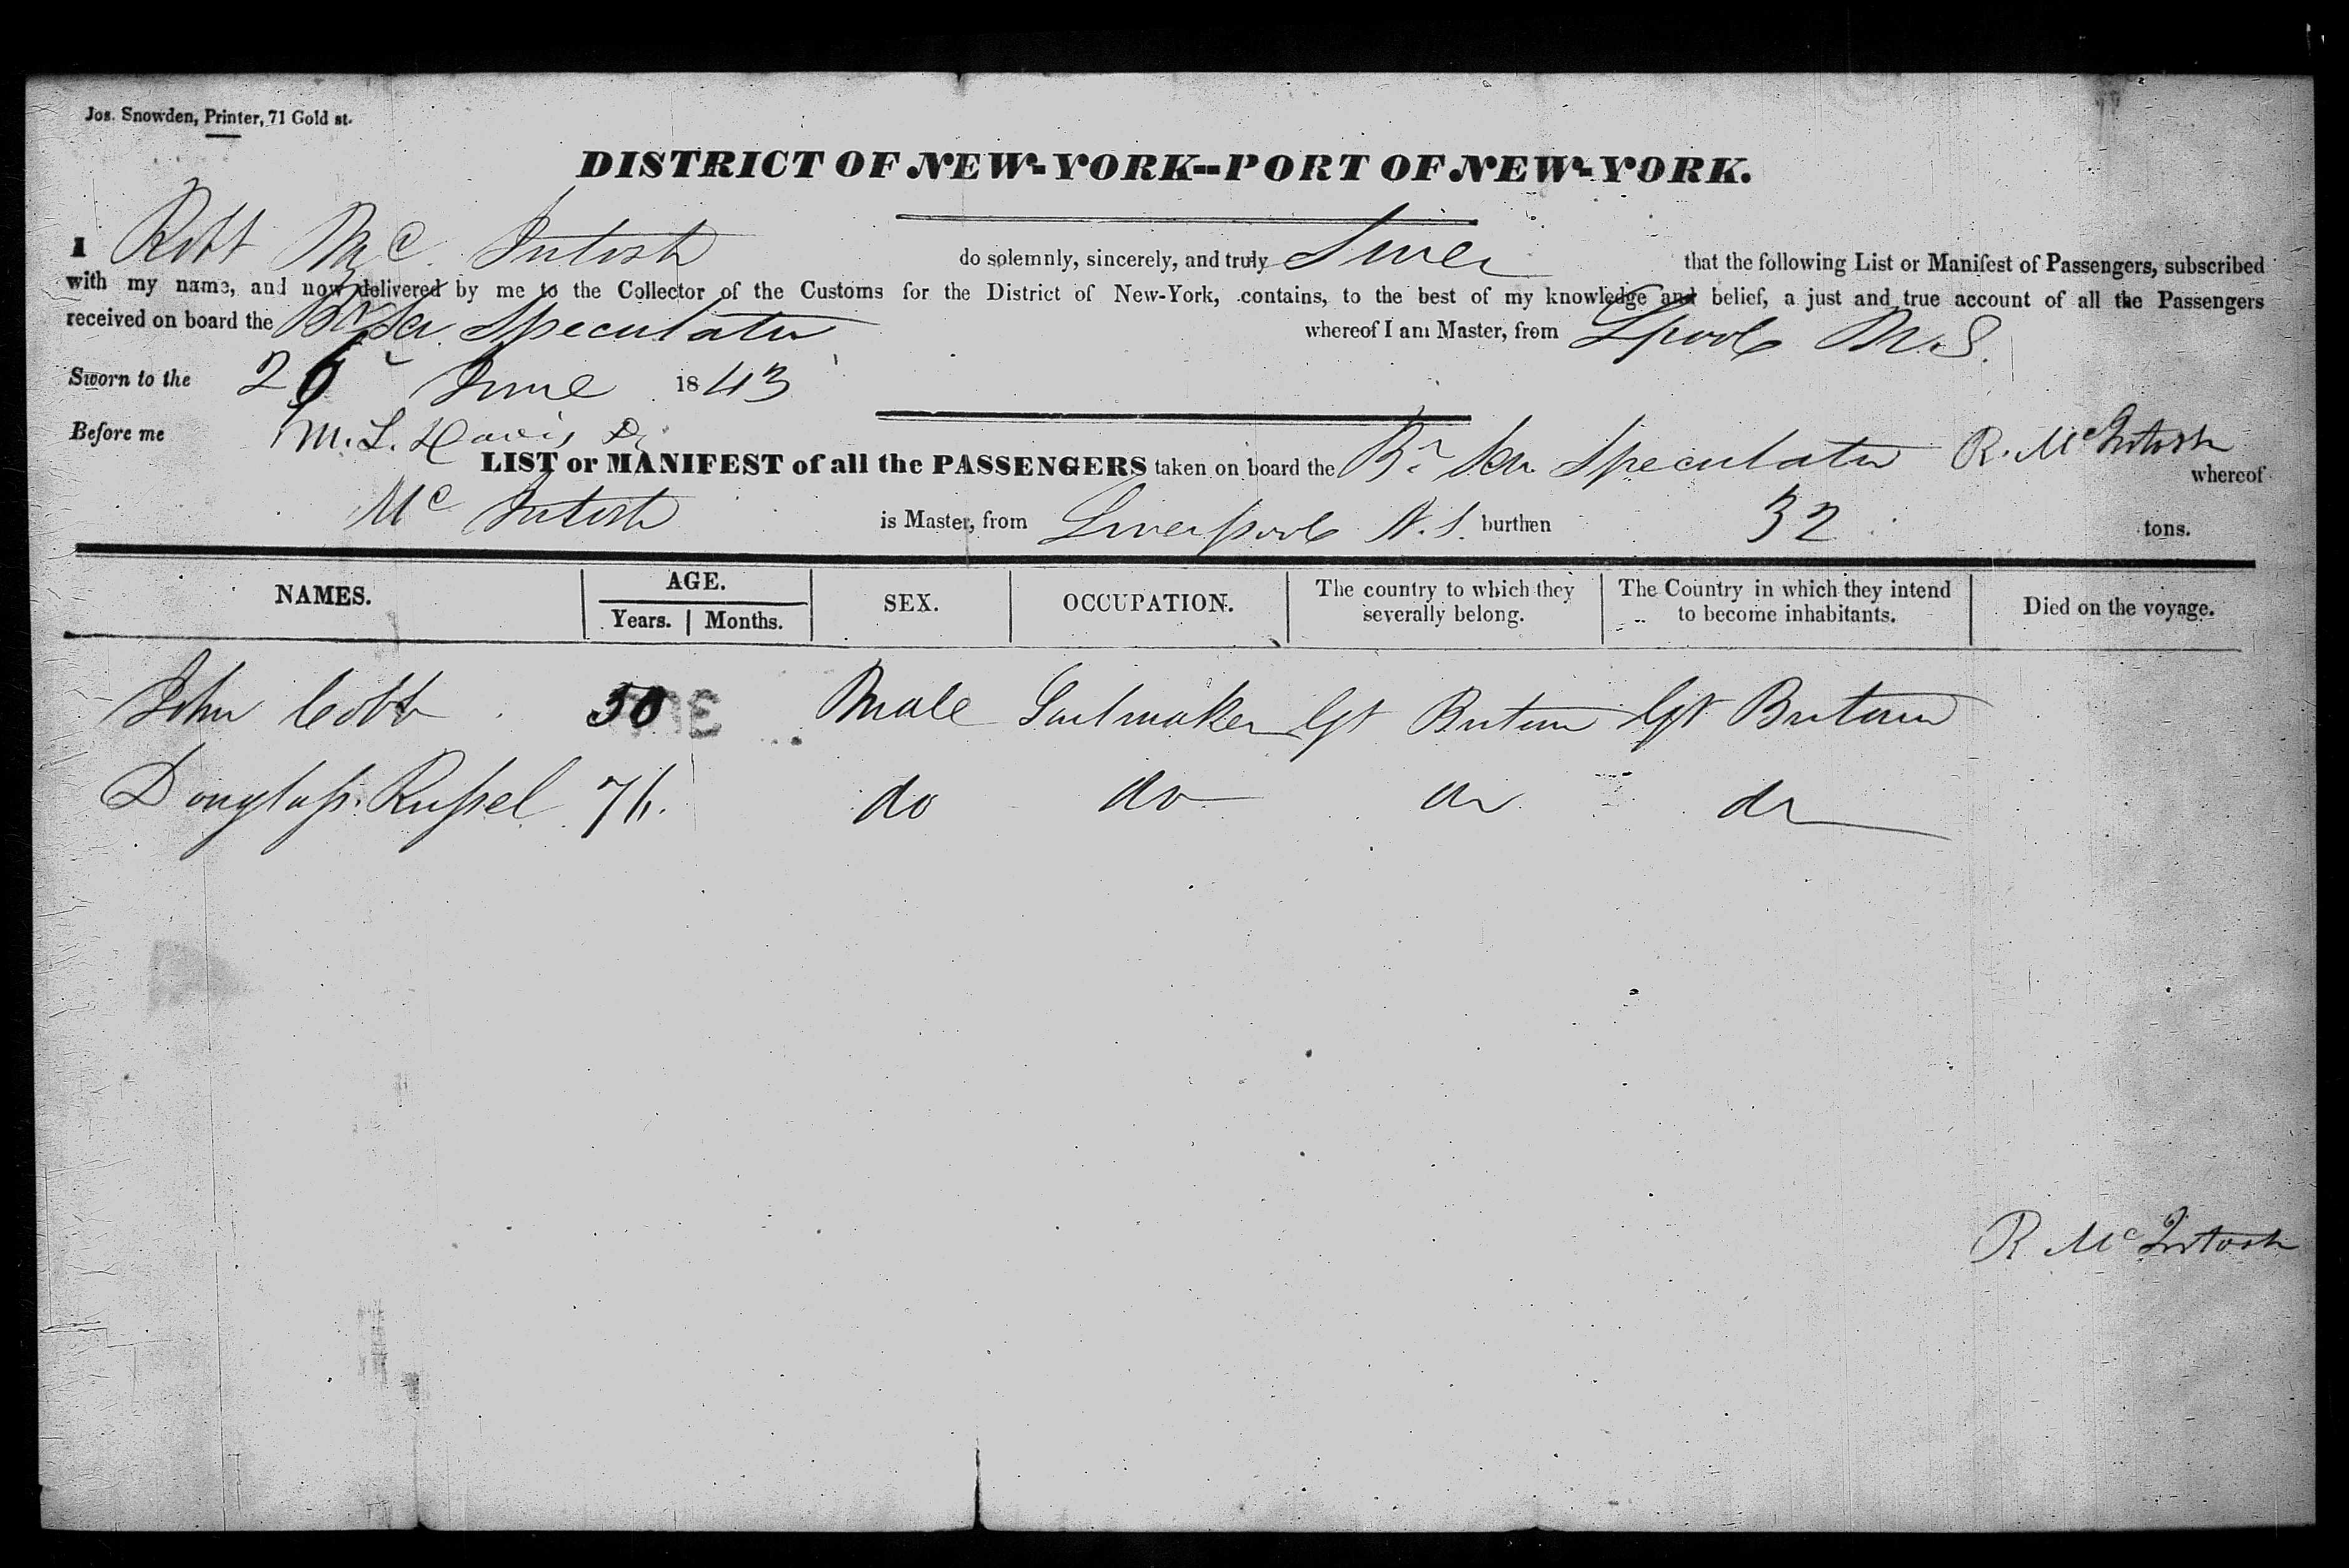 Jos. Snowden, Printer, 71 Gold st.
DISTRICT OF NEW-YORK--PORT OF NEW-YORK.
I Robt Mc Intosh do solemnly, sincerely, and truly Swear that the following List or Manifest of Passengers, subscribed
with my name, and now delivered by me to the Collector of the Customs for the District of New-York, contains, to the best of my knowledge and belief, a just and true account of all the Passengers
received on board the Br Scr Speculator whereof I am Master, from Lpool N.S.
Sworn to the 26 June 1843
Before me M. L. Davis
LIST or MANIFEST of all the PASSENGERS taken on board the Br Scr Speculator R. McIntosh whereof
Mc Intosh is Master, from Liverpool N.S. burthen 32 tons.
NAMES. AGE. SEX. OCCUPATION. The country to which they severally belong. The Country in which they intend to become inhabitants. Died on the voyage.
Years. Months.
John Cobb 30 Male Sailmaker Gt Britain Gt Britain
Douglass Russel do do do do
R McIntosh